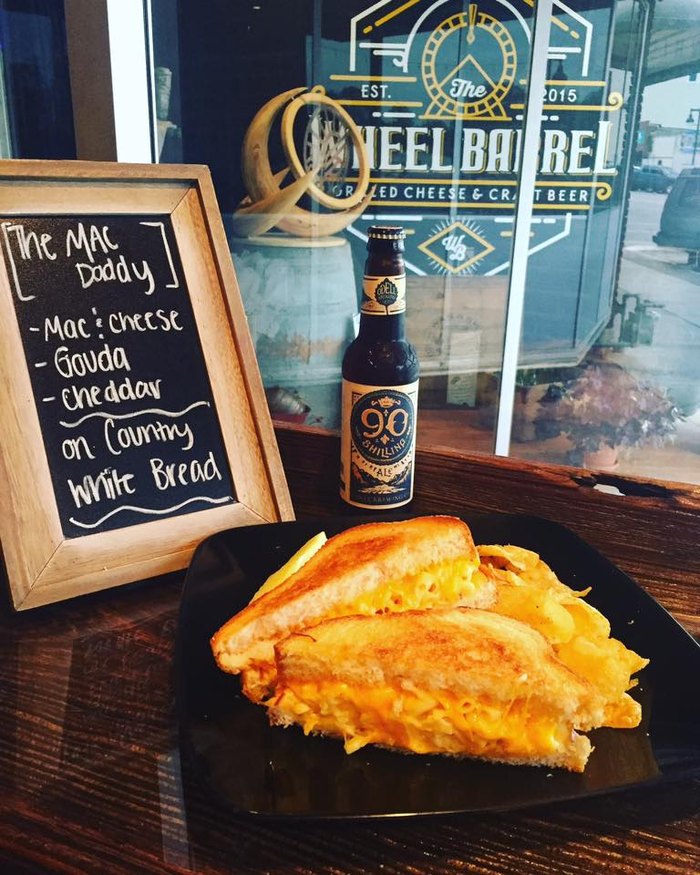 The MAC
Daddy
- Mac & cheese
- Gouda
- cheddar
on Country
White Bread
EST. The 2015
WHEEL BARREL
GRILLED CHEESE & CRAFT BEER
WB
ODELL
90
SHILLING
ALE